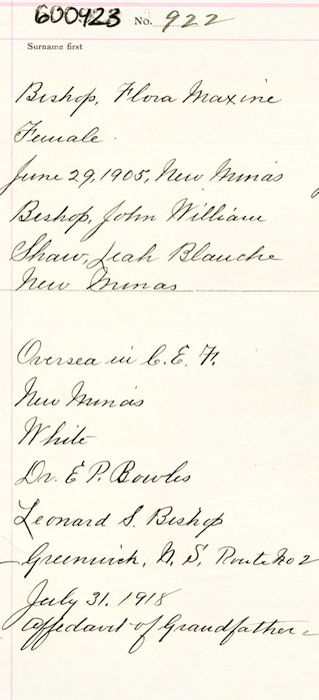 600923 No. 922
Surname first
Bishop, Flora Maxine
Female
June 29, 1905, New Minas
Bishop, John William
Shaw, Leah Blanche
New Minas
Oversea in C. E. F.
New Minas
White
Dr. E P. Bowles
Leonard S. Bishop
Greenwich, N. S, Route No 2
July 31. 1918
Affidavit of Grandfather